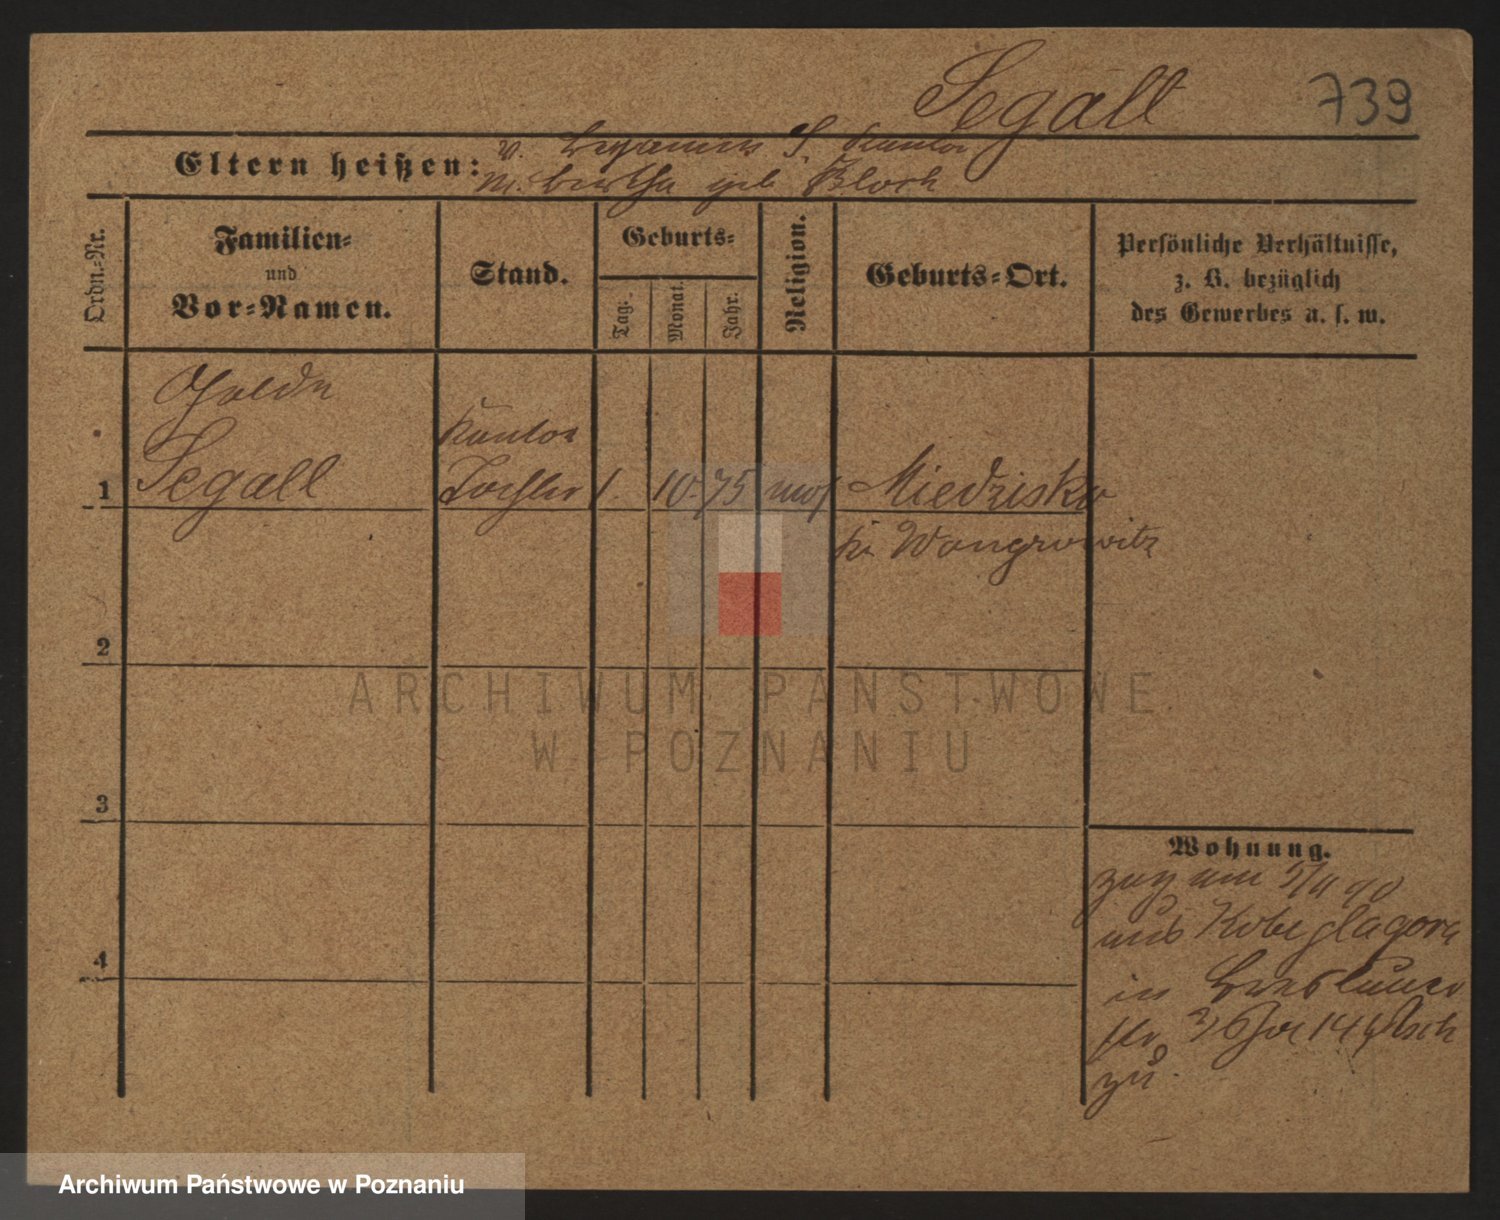 Segall 739
Eltern heißen: v. Benjamin S. Kantor
m. bertha geb Bloch
Ordn.-Nr.
Familien-
und
Vor-Namen.
Stand.
Geburts-
Tag:
Monat.
Jahr.
Religion.
Geburts-Ort.
Persönliche Verhältnisse,
z. B. bezüglich
des Gewerbes u. s. w.
Kantor
1 Segall Tochter 1. 10. 75 mos Miedzisko
Wongrowitz
2
ARCHIWUM PAŃSTWOWE
W POZNANIU
3
4
Wohnung.
zug am 90
aus Kobylagora
in Breslauer
str
zu.
Archiwum Państwowe w Poznaniu